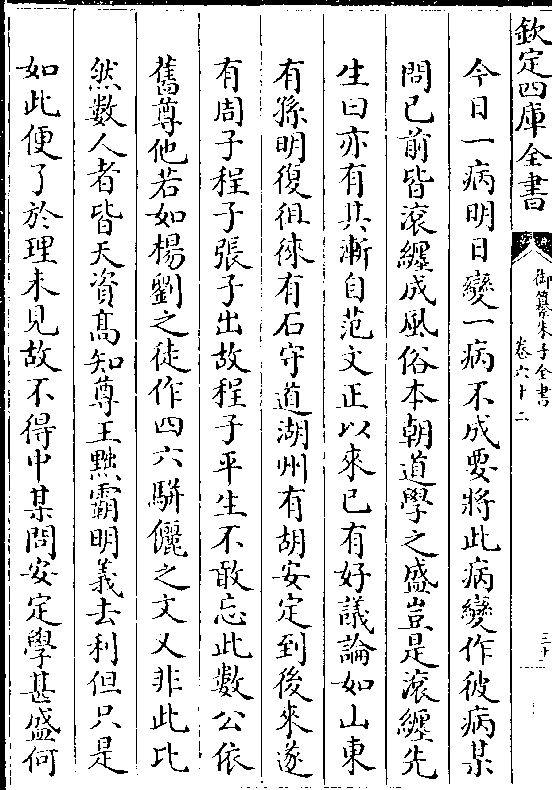 欽定四庫全書
御纂朱子全書
卷六十二
三十
今日一病明日變一病不成要將此病變作彼病某
問已前皆滾纏成風俗本朝道學之盛豈是滾纏先
生曰亦有其漸自范文正以來已有好議論如山東
有孫明復徂徠有石守道湖州有胡安定到後來遂
有周子程子張子出故程子平生不敢忘此數公依
舊尊他若如楊劉之徒作四六駢儷之文又非此比
然數人者皆天資髙知尊王黜霸明義去利但只是
如此便了於理未見故不得中某問安定學甚盛何